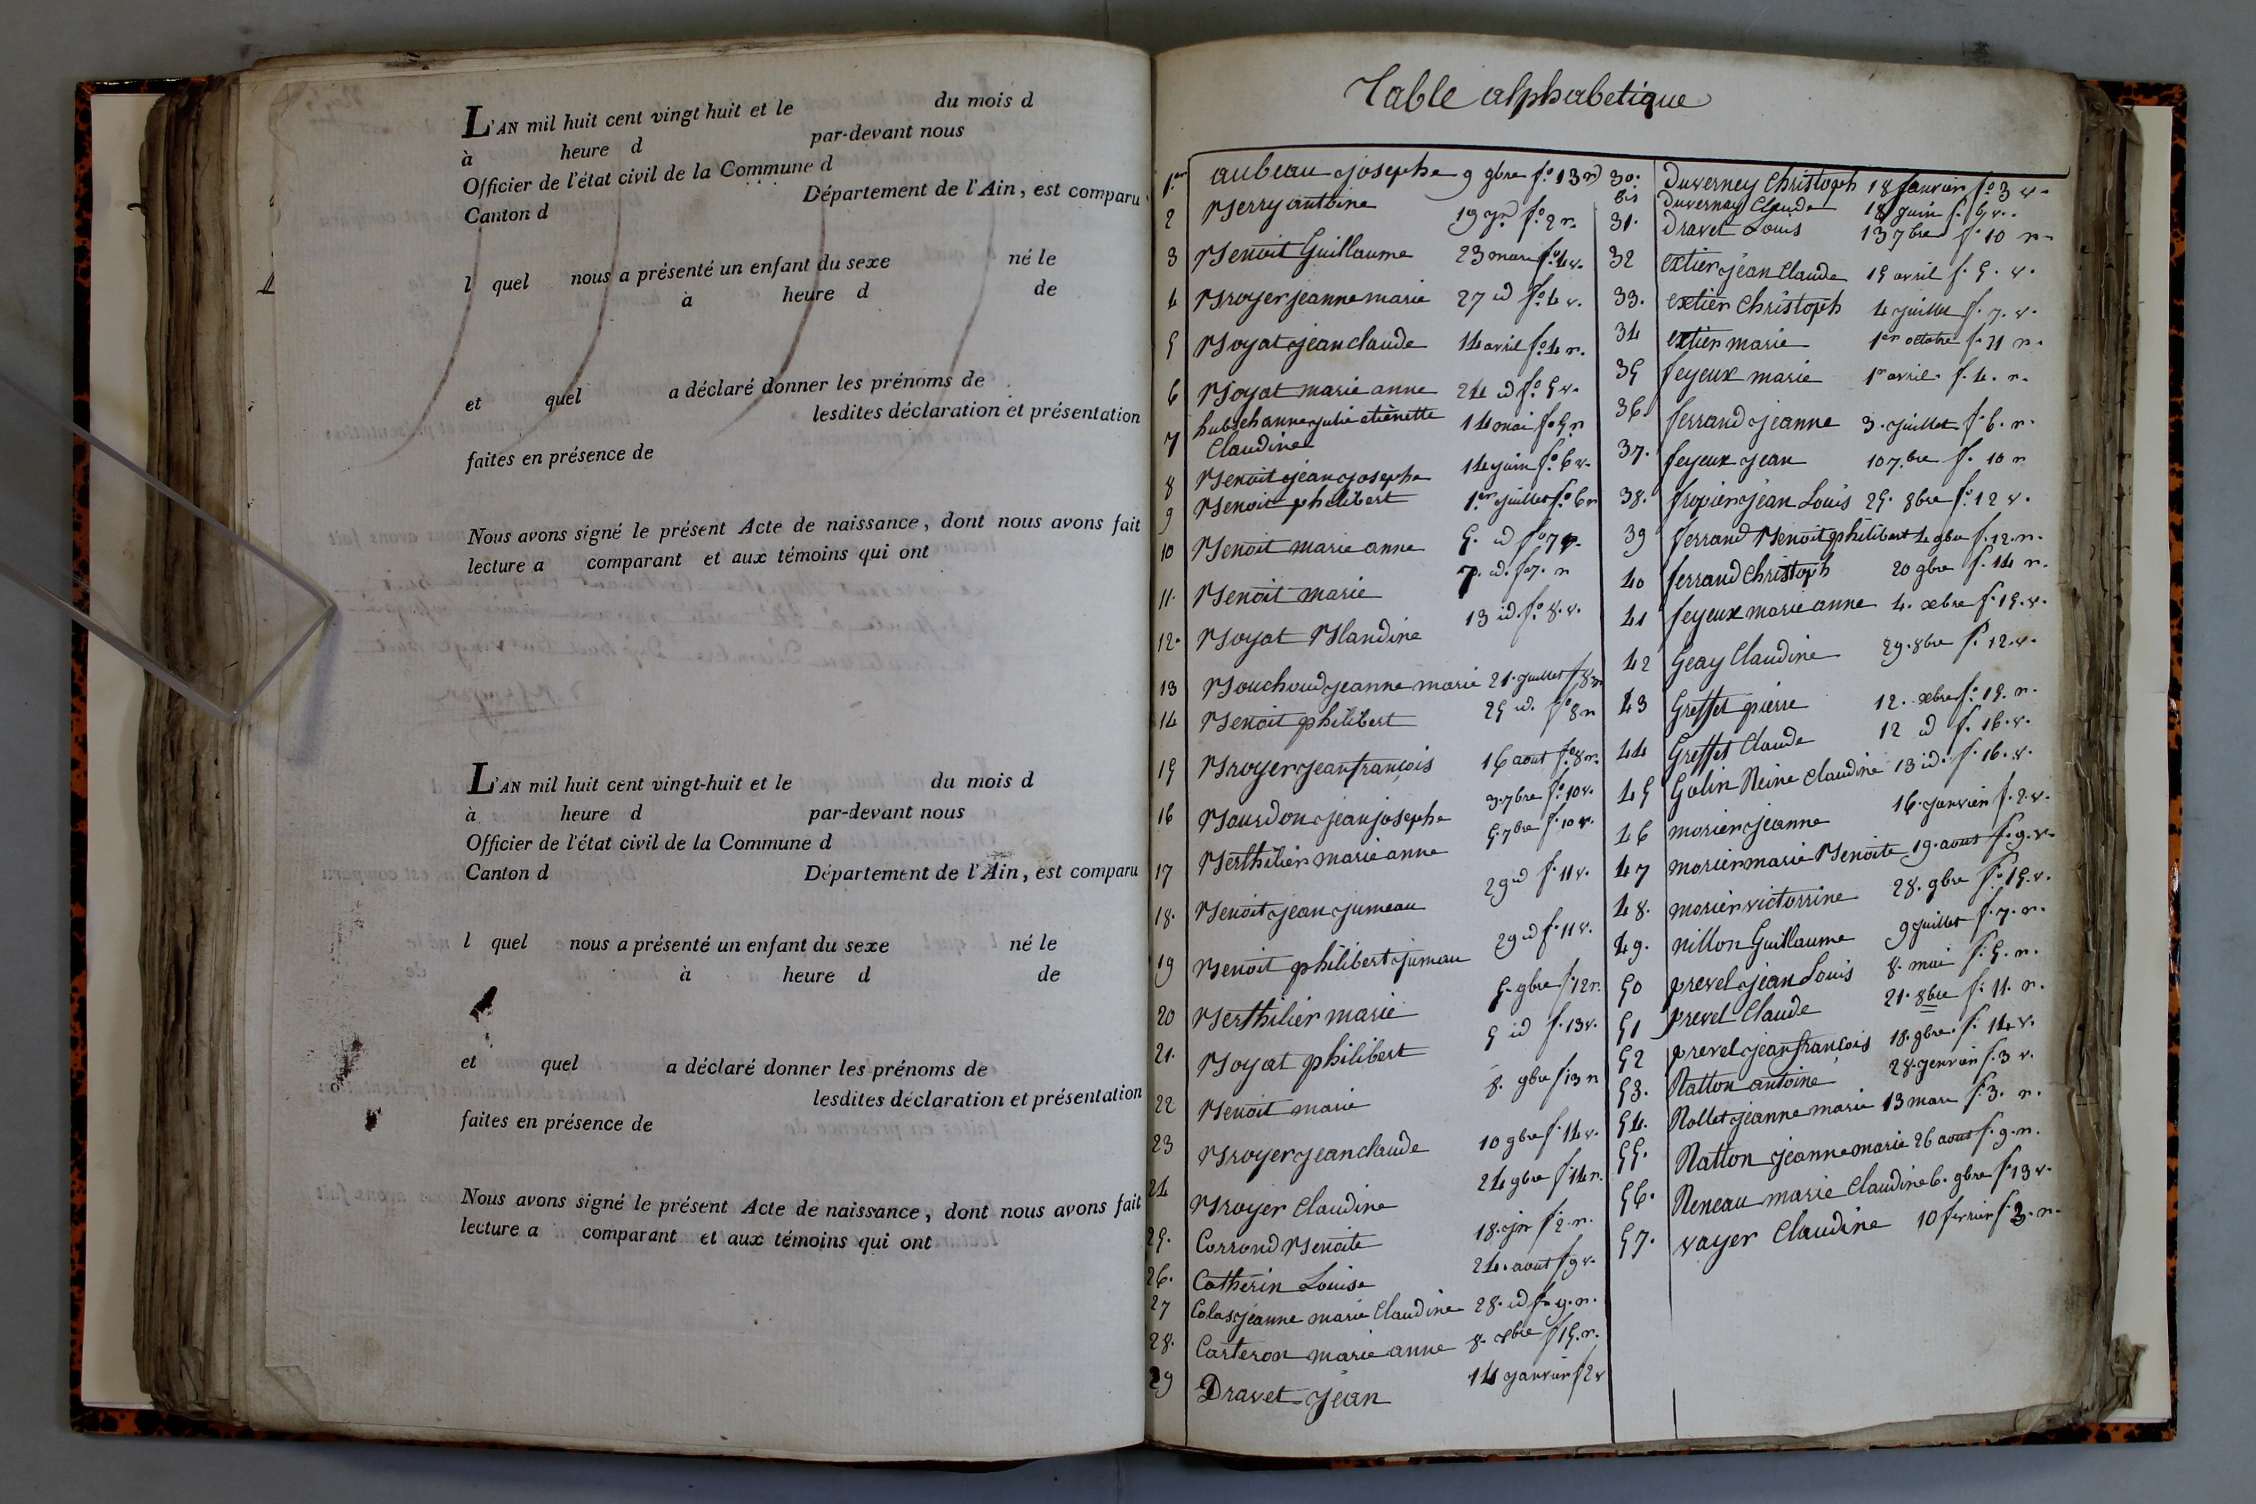 L'AN mil huit cent vingt-huit et le du mois d
à heure d par-devant nous
Officier de l'état civil de la Commune d
Canton d Département de l'Ain, est comparu
l quel nous a présenté un enfant du sexe né le
à heure d de
et quel a déclaré donner les prénoms de
lesdites déclaration et présentation
faites en présence de
Nous avons signé le présent Acte de naissance, dont nous avons fait
lecture a comparant et aux témoins qui ont
L'AN mil huit cent vingt-huit et le du mois d
à heure d par-devant nous
Officier de l'état civil de la Commune d
Canton d Département de l'Ain, est comparu
l quel nous a présenté un enfant du sexe né le
à heure d de
et quel a déclaré donner les prénoms de
lesdites déclaration et présentation
faites en présence de
Nous avons signé le présent Acte de naissance, dont nous avons fait
lecture a comparant et aux témoins qui ont
Table alphabetique
1.er aubeau josephe 9 9bre f.o 13 r
2 Berry antoine 19 f.o 2 r.
3 Benoit Guillaume 23 mars f.o 4 v.
4 Broyer jeanne marie 27 id f.o 4 v.
5 Boyat jean claude 14 avril f.o 4 r.
6 Boyat marie anne 24 id f.o 5 v.
7 anne julie etiènette 14 mai f.o 5 r
Claudine
8 Benoit jean josephe 14 juin f.o 6 v.
9 Benoit philibert 1.er juillet f.o 6 r
10 Benoit marie anne 5. id f.o 7 v.
11. Benoit marie 7. id. f.o 7. r
12. Boyat Blandine 13 id. f.o 8. v.
13 Bouchoud jeanne marie 21. juillet f. 8 v
14 Benoit philibert 25 id. f.o 8 r
15 Broyer jean françois 16 aout f.o 8 r.
16 Bourdon jean josephe 3. 7bre f.o 10 v.
17 Berthilier marie anne 5. 7bre f. 10 v.
18. Benoit jean jumeau 29 id f. 11 v.
19 Benoit philibert jumeau 29 id f. 11 v.
20 Berthilier marie 5. 9bre f. 12 r.
21. Boyat philibert 5 id f. 13 v.
22 Benoit marie 8. 9bre f. 13 r
23 Broyer jean claude 10 9bre f. 14 v.
24 Broyer Claudine 24 9bre f. 14 r.
25. Corrond Benoite 18. jer f. 2. r.
26. Catherin Louise 24. aout f. 9 v.
27 Colas jeanne marie Claudine 28. id f. 9. r.
28. Carteron marie anne 8. xbre f. 15. r.
29 Dravet jean 14 janvier f. 2 v
30. Duverney Christoph 18 janvier f.o 3 v.
bis Duvernay Claude 18 juin f. 6 v.
31. Dravet Louis 13 7bre f. 10 r.
32 extier jean Claude 15 avril f. 5. v.
33. extier Christoph 4 juillet f. 7. v.
34 extier marie 1er octobre f. 11 r.
35 feyeux marie 1er avril. f. 4. r.
36. ferrand jeanne 3. juillet f. 6. r.
37. feyeux jean 10 7.bre f. 10 r
38. fropier jean Louis 25. 8bre f.o 12 v.
39 ferrand Benoit philibert 4 9bre f. 12. r.
40 ferrand Christoph 20 9bre f. 14 r.
41 feyeux marie anne 4. xbre f. 15. v.
42 Geay Claudine 29. 8bre f. 12. v.
43 Greffet pierre 12. xbre f.o 15. r.
44 Greffet Claude 12 id f. 16. v.
45 Golin Reine Claudine 13 id. f. 16. v.
46 morier jeanne 16. janvier f. 2. v.
47 morier marie Benoite 19. aout f. 9. v.
48. morier victorrine 28. 9bre f.o 15. v.
49. nillon Guillaume 9 juillet f. 7. r.
50 prevel jean Louis 8. mai f. 5. r.
51 prevel Claude 21. 8bre f. 11. r.
52 prevel jean françois 18. 9bre. f. 14 v.
53. Ratton antoine 28. janvier f. 3 v.
54. Rollet jeanne marie 13 mars f. 3. r.
55. Ratton jeanne marie 26 aout f. 9. r.
56. Reneau marie Claudine 6. 9bre f. 13 v.
57. vayer Claudine 10 fevrier f. 3. r.